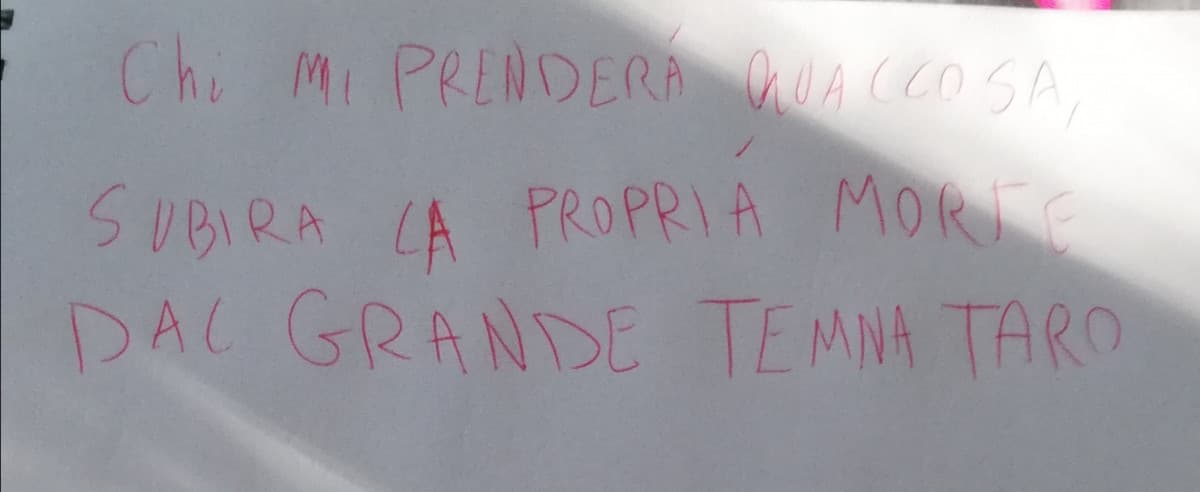 Chi MI PRENDERÁ QUALCOSA,
SUBIRA LA PROPRIÁ MORTE
DAL GRANDE TEMNA TARO